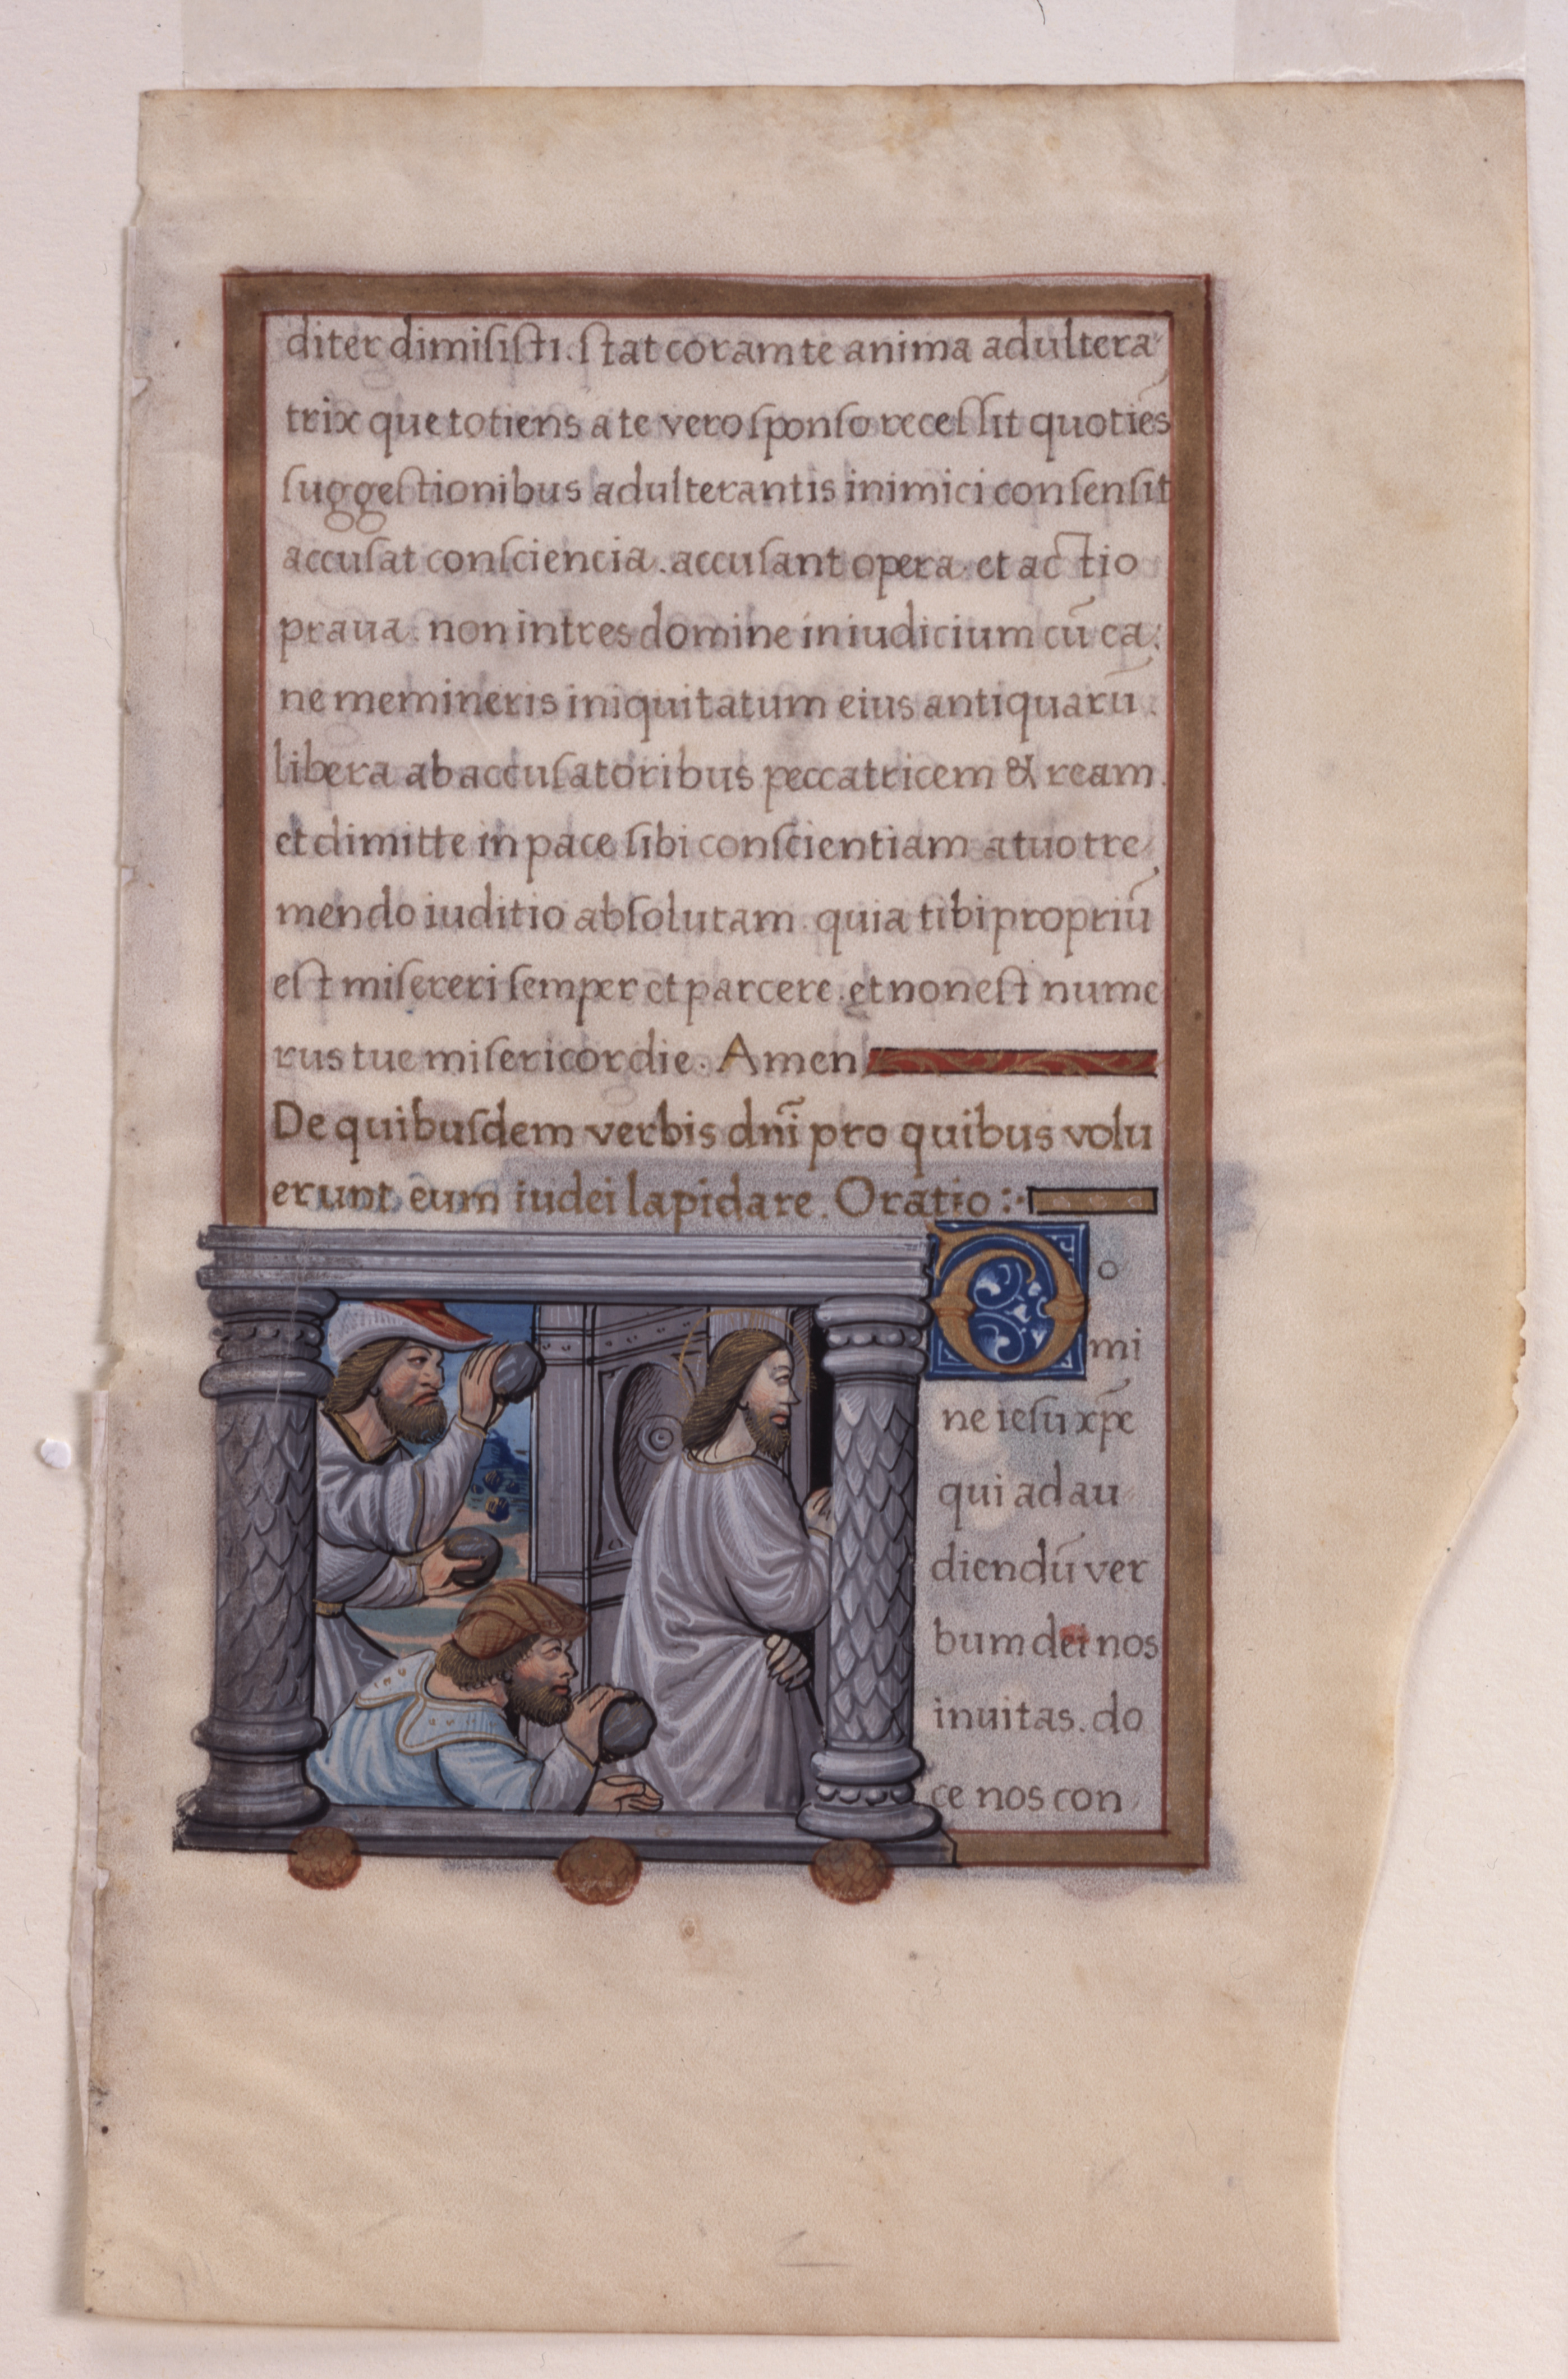 diter dimiſiſti. ſtat coram te anima adultera
trix que totiens a te vero ſponſo receſſit quotiēs
ſuggeſtionibus adulterantis inimici conſenſit
accuſat conſciencia. accuſant opera. et actio
praua. non intres domine in iudicium cū ea:
ne memineris iniquitatum eius antiquarū.
libera ab accuſatoribus peccatricem & ream.
et dimitte in pace ſibi conſcientiam a tuo tre
mendo iuditio abſolutam. quia tibi propriū
eſt miſereri ſemper et parcere. et non eſt nume
rus tue miſericordie. Amen
De quibuſdem verbis dn̄i pro quibus volu
erunt eum iudei lapidare. Oratio :
Do
mi
ne ieſu xp̄e
qui ad au
diendū ver
bum dei nos
inuitas. do
ce nos con